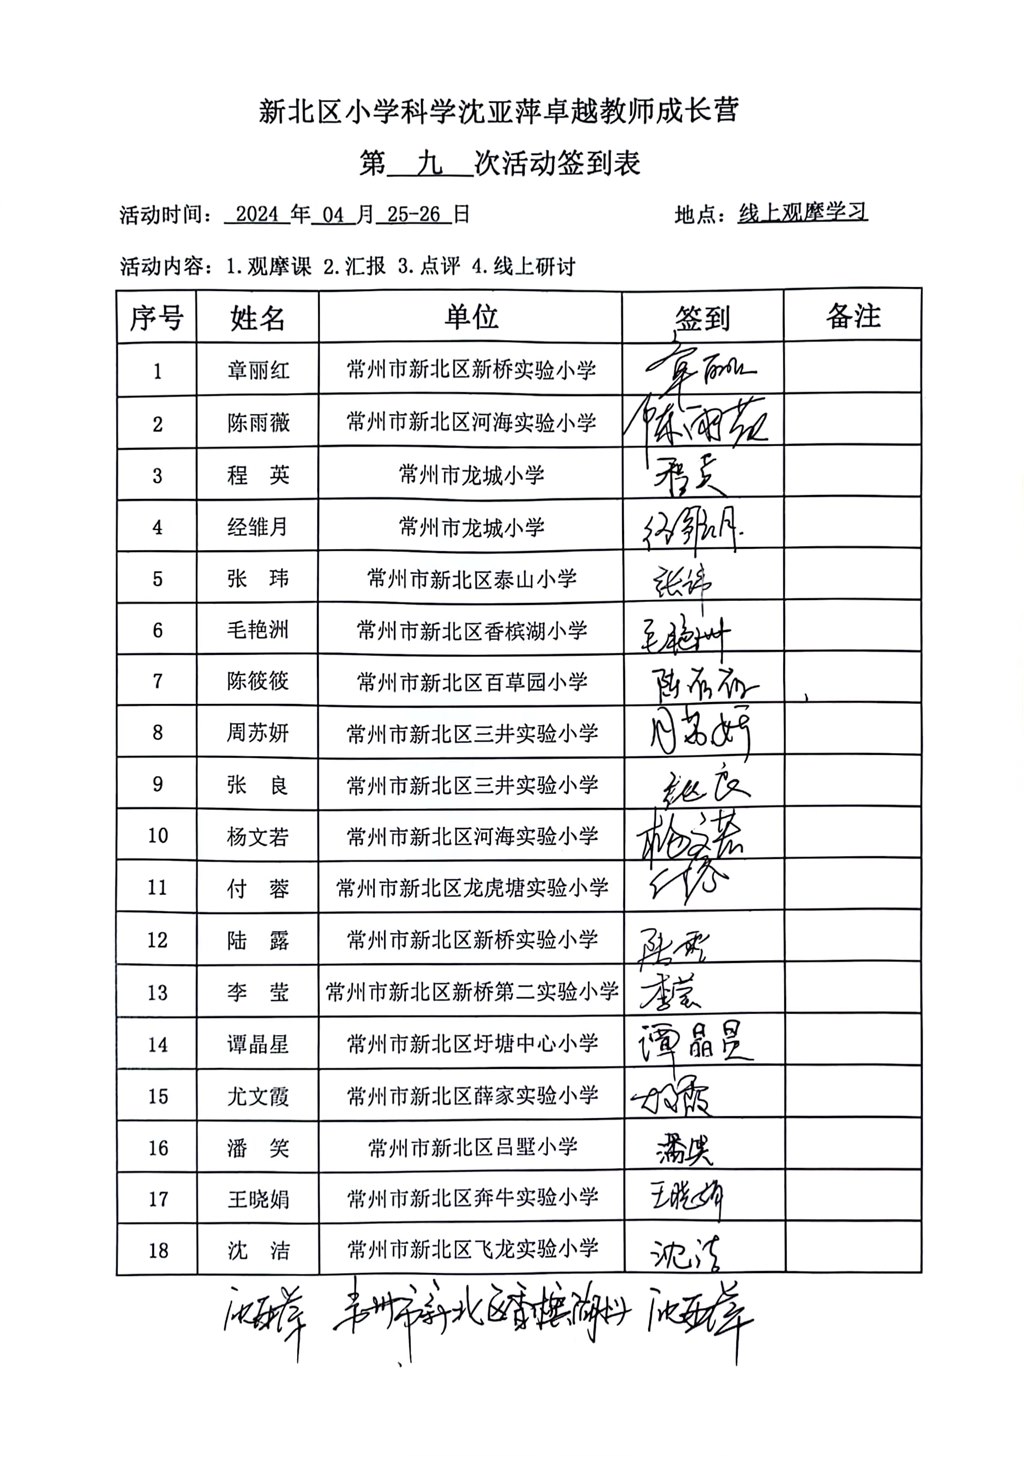 新北区小学科学沈亚萍卓越教师成长营
第 九 次活动签到表
活动时间： 2024 年 04 月 25-26 日 地点：线上观摩学习
活动内容：1.观摩课 2.汇报 3.点评 4.线上研讨
序号 姓名 单位 签到 备注
1 章丽红 常州市新北区新桥实验小学 章丽红
2 陈雨薇 常州市新北区河海实验小学 陈雨薇
3 程 英 常州市龙城小学 程英
4 经雏月 常州市龙城小学 经雏月
5 张 玮 常州市新北区泰山小学 张玮
6 毛艳洲 常州市新北区香槟湖小学 毛艳洲
7 陈筱筱 常州市新北区百草园小学 陈筱筱
8 周苏妍 常州市新北区三井实验小学 周苏妍
9 张 良 常州市新北区三井实验小学 张良
10 杨文若 常州市新北区河海实验小学 杨文若
11 付 蓉 常州市新北区龙虎塘实验小学 付蓉
12 陆 露 常州市新北区新桥实验小学 陆露
13 李 莹 常州市新北区新桥第二实验小学 李莹
14 谭晶星 常州市新北区圩塘中心小学 谭晶星
15 尤文霞 常州市新北区薛家实验小学 尤文霞
16 潘 笑 常州市新北区吕墅小学 潘笑
17 王晓娟 常州市新北区奔牛实验小学 王晓娟
18 沈 洁 常州市新北区飞龙实验小学 沈洁
沈亚萍 常州市新北区香槟湖小 沈亚萍